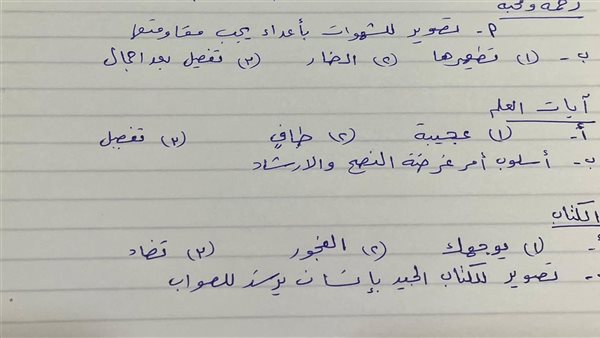 رحمة ومحبة
م- تصوير للشهوات بأعداء يجب مقاومتها
ب- (١) تطهيرها (٢) الضار (٣) تفصيل بعد اجمال
آيات العلم
أ- (١) عجيبة (٢) طافٍ (٣) تفصيل
ب- أسلوب أمر غرضه النصح والارشاد
الكتاب
أ- (١) يوجهك (٢) الفجور (٣) تضاد
ب- تصوير للكتاب الجيد بإنسان يرشد للصواب